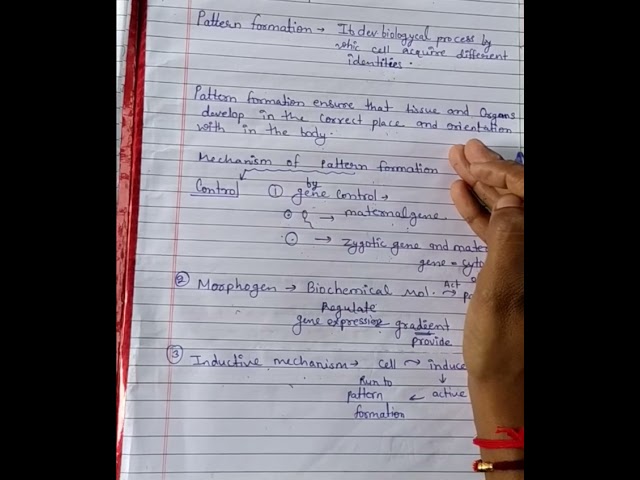 Pattern formation → It dev biologycal process by
whic cell acquire different
identities.
Pattern formation ensure that tissue and Organs
develop in the correct place and orientation
with in the body.
Mechanism of Pattern formation
Control ① by gene control →
→ maternal gene
→ Zygotic gene and mater
gene = cyto
② Morphogen → Biochemical Mol. Act →
Regulate
gene expression gradient
provide
③ Inductive mechanism → cell → induce
↓
Run to pattern ← active
formation